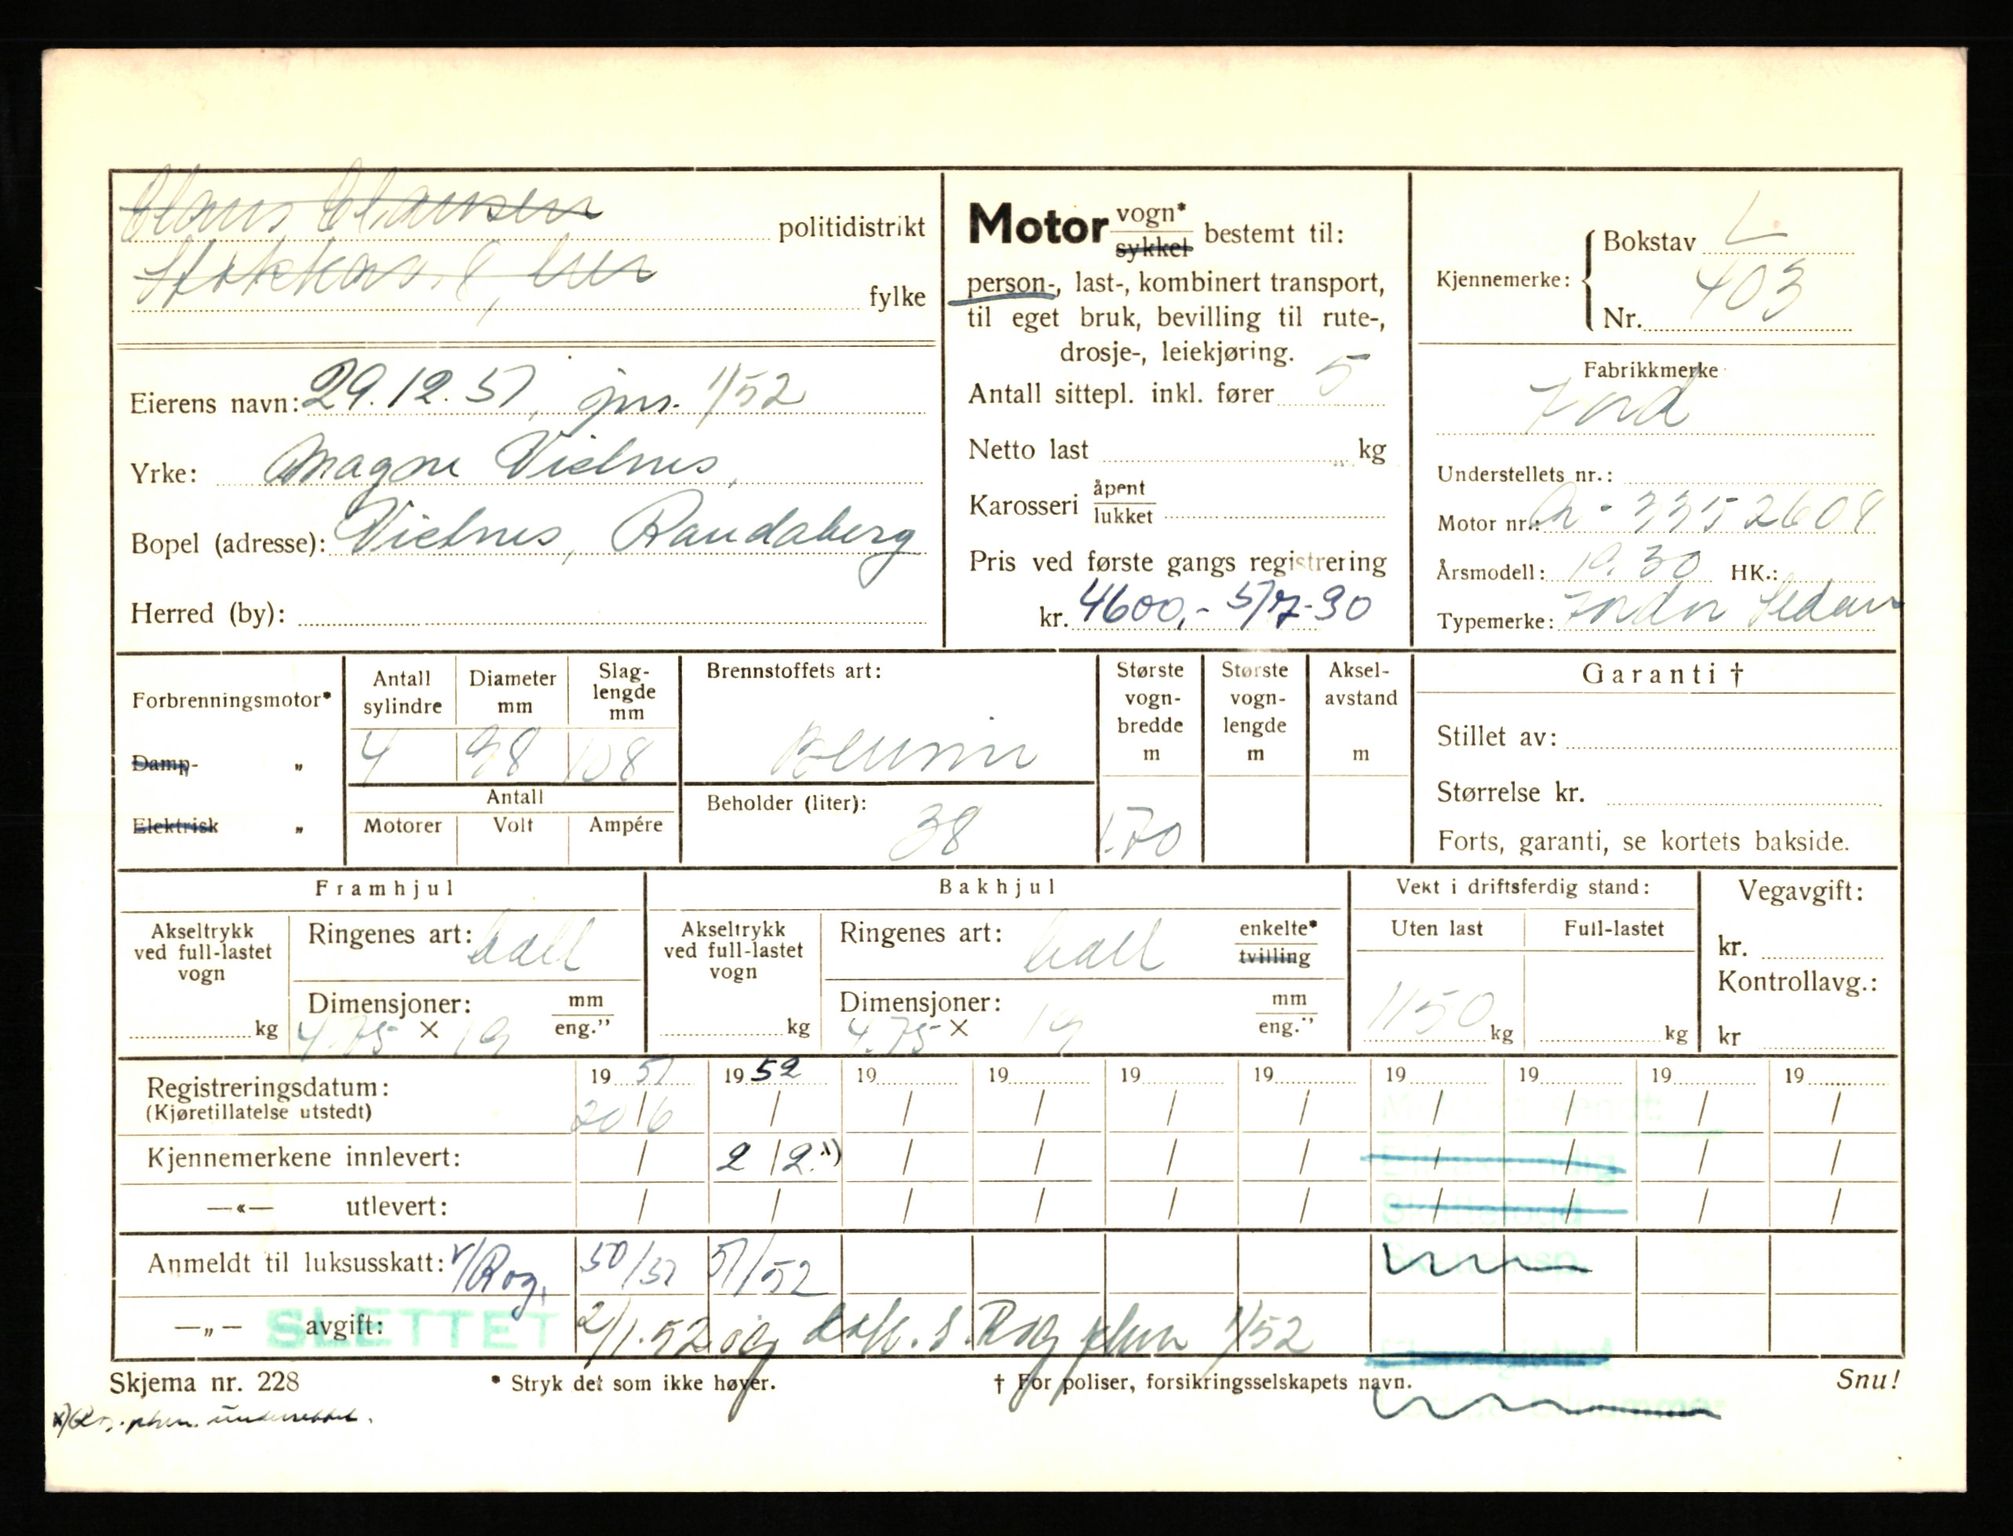 Claus Clausen politidistrikt
fylke
Eierens navn: 29.12.51, jnr. 1/52
Yrke: Magne Vistnes,
Bopel (adresse): Vistnes, Randaberg
Herred (by):
Motor vogn*
sykkel bestemt til:
person-, last-, kombinert transport,
til eget bruk, bevilling til rute-,
drosje-, leiekjøring.
Antall sittepl. inkl. fører 5
Netto last kg
Karosseri åpent
lukket
Pris ved første gangs registrering
kr. 4600,- 5/7-30
Kjennemerke: Bokstav L.
Nr. 403
Fabrikkmerke
Ford
Understellets nr.:
Motor nr.: A-3352608
Årsmodell: 19.30 HK.:
Typemerke: Fordor Sedan
Forbrenningsmotor*
Damp- „
Elektrisk „
Antall
sylindre
4
Diameter
mm
98
Slag-
lengde
mm
108
Antall
Motorer Volt Ampére
Brennstoffets art:
Bensin
Beholder (liter):
38
Største
vogn-
bredde
m
1.70
Største
vogn-
lengde
m
Aksel-
avstand
m
Garanti †
Stillet av:
Størrelse kr.
Forts, garanti, se kortets bakside.
Framhjul
Akseltrykk
ved full-lastet
vogn
kg
Ringenes art: ball
Dimensjoner: mm
4.75 × 19 eng.”
Bakhjul
Akseltrykk
ved full-lastet
vogn
kg
Ringenes art: ball enkelte*
tvilling
Dimensjoner: mm
4.75 × 19 eng.”
Vekt i driftsferdig stand:
Uten last Full-lastet
1150 kg kg
Vegavgift:
kr.
Kontrollavg.:
kr
Registreringsdatum: 19 51 19 52 19 19 19 19 19 19 19 19
(Kjøretillatelse utstedt) 20/6 / / / / / / / / /
Kjennemerkene innlevert: / 2/2.x) / / / / / / / /
—«— utlevert: / / / / / / / / / /
Anmeldt til luksusskatt: v/Rog. 50/51 51/52
—„— avgift: SLETTET 2/1.52 og dok. s. Rog phm 1/52
Skjema nr. 228 * Stryk det som ikke høyer. † For poliser, forsikringsselskapets navn. Snu!
x) Rog. phm. underrettet.